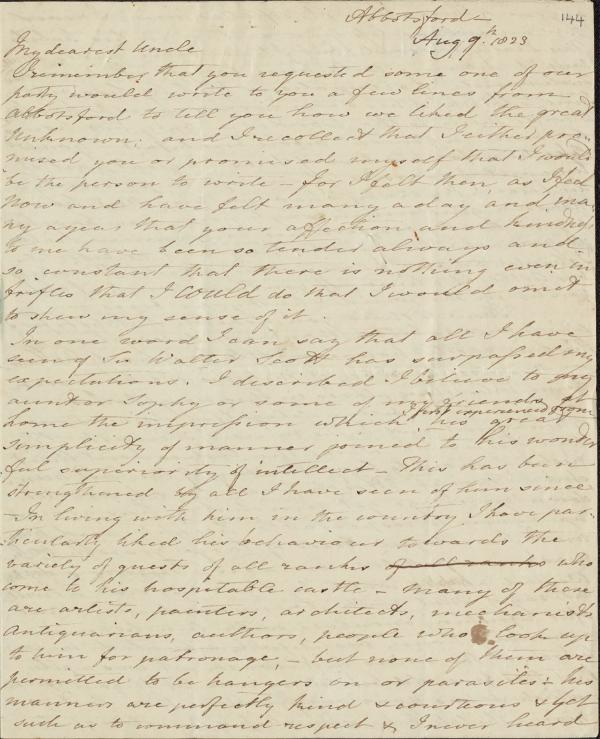 Abbotsford 144
Aug 9th 1823
My dearest Uncle
I remember that you requested some one of our
party would write to you a few lines from
Abbotsford to tell you how we liked the great
Unknown; and I recollect that I either pro-
mised you or promised myself that I would
be the person to write – for I felt then, as I feel
now and have felt many a day and ma-
ny a year that your affection and kindness
to me have been so tender always and
so constant that there is nothing even in
trifles that I could do that I would omit
to shew my sense of it.
In one word I can say that all I have
seen of Sir Walter Scott has surpassed my
expectations. I described I believe to my
aunt or Sophy or some of my friends at
home the impression which I first experienced from his great
simplicity of manner joined to his wonder
ful superiority of intellect – This has been
strengthened by all I have seen of him since
– In living with him in the country I have par-
ticularly liked his behaviour towards the
variety of guests of all ranks of all ranks who
come to his hospitable castle – many of these
are artists, painters, architects, mechanists
antiquarians, authors, people who look up
to him for patronage, – but none of them are
permitted to be hangers on or parasites: his
manners are perfectly kind & courteous & yet
such as to command respect & I never heard